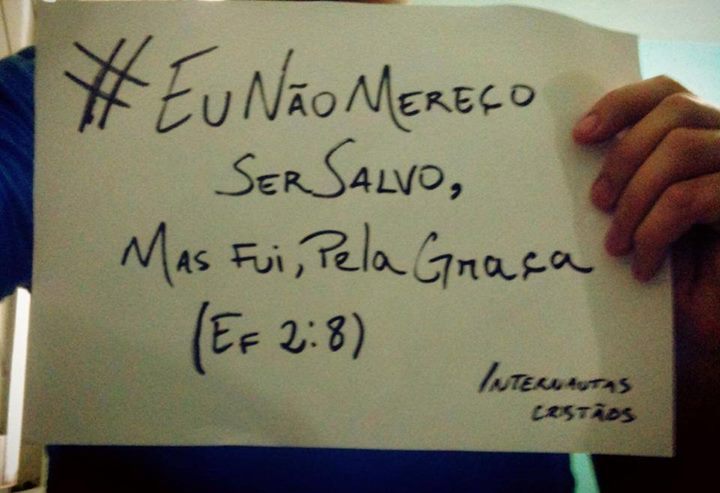 #EuNãoMereço
Ser Salvo,
Mas Fui, Pela Graça
(Ef 2:8)
Internautas
Cristãos